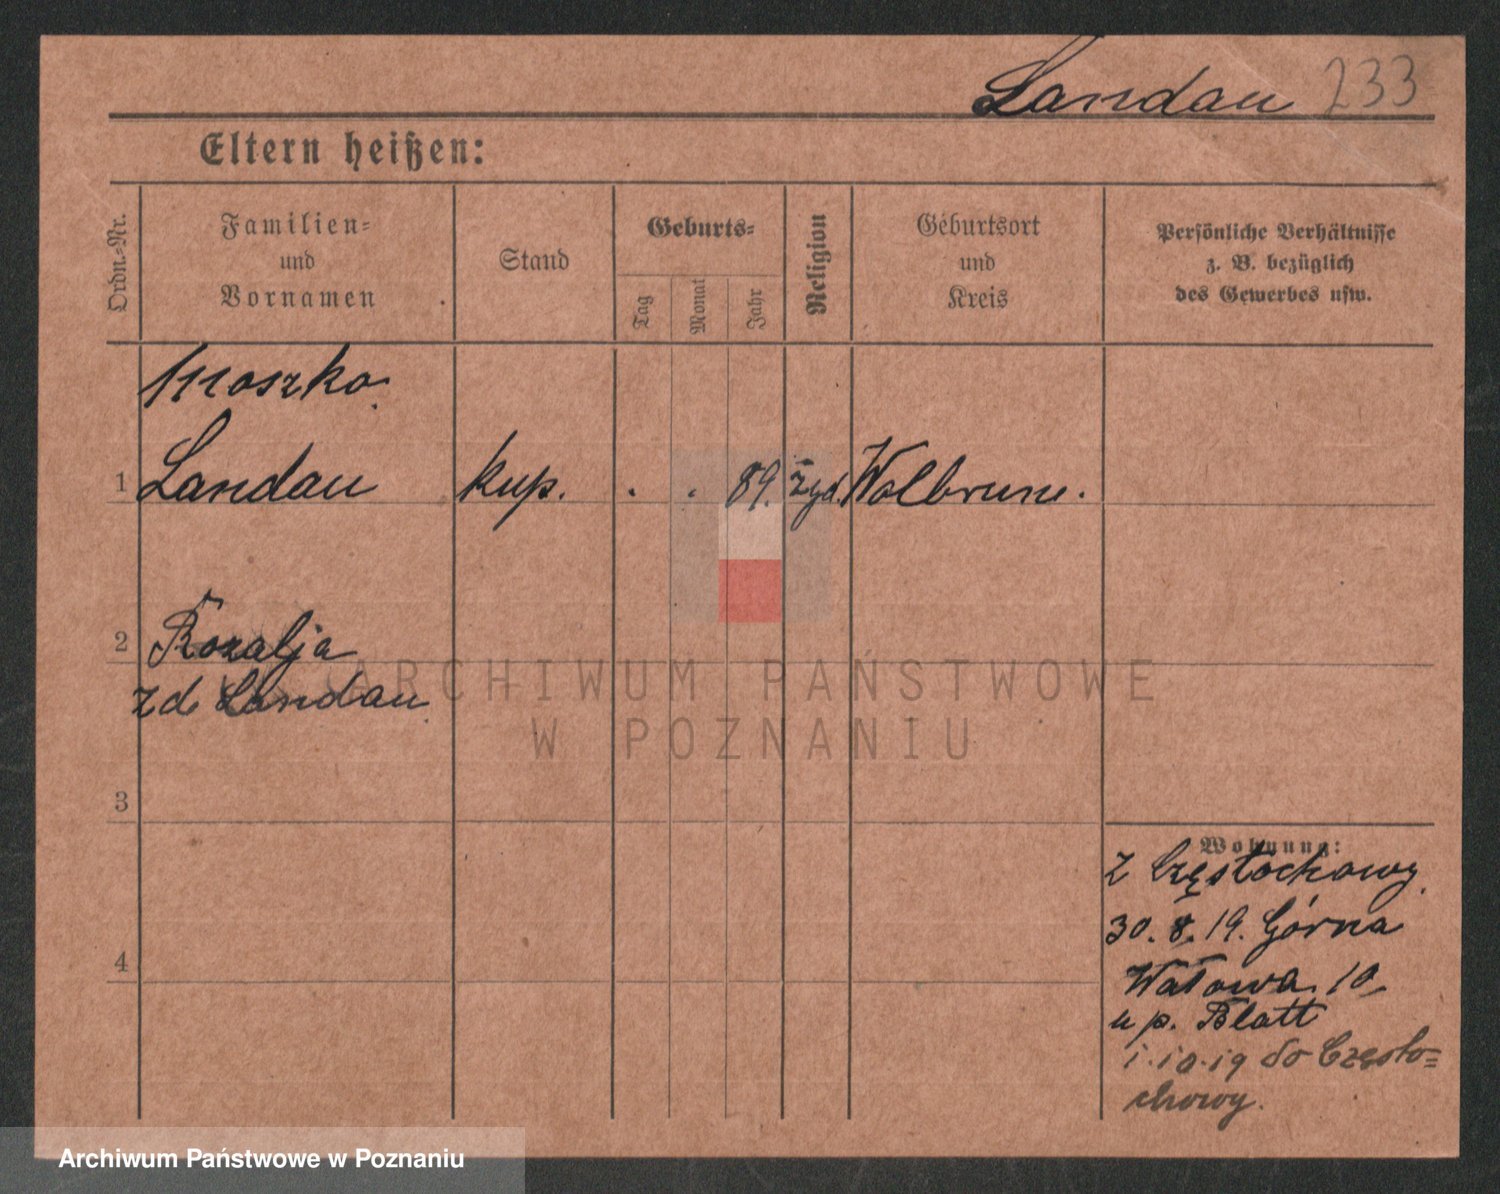 Landau 233
Eltern heißen:
Ordn.-Nr.
Familien-
und
Vornamen
Stand
Geburts-
Tag
Monat
Jahr
Religion
Geburtsort
und
Kreis
Persönliche Verhältnisse
z. B. bezüglich
des Gewerbes usw.
Moszko
1 Landau kup. . . 89. żyd. Wolbrum.
2 Rozalja
zd Landau
3
4
Wohnung:
z Częstochowy
30. 8. 19. Górna
Wałowa 10
u p. Blatt
1.10.19 do Często=
chowy.
ARCHIWUM PAŃSTWOWE
W POZNANIU
Archiwum Państwowe w Poznaniu